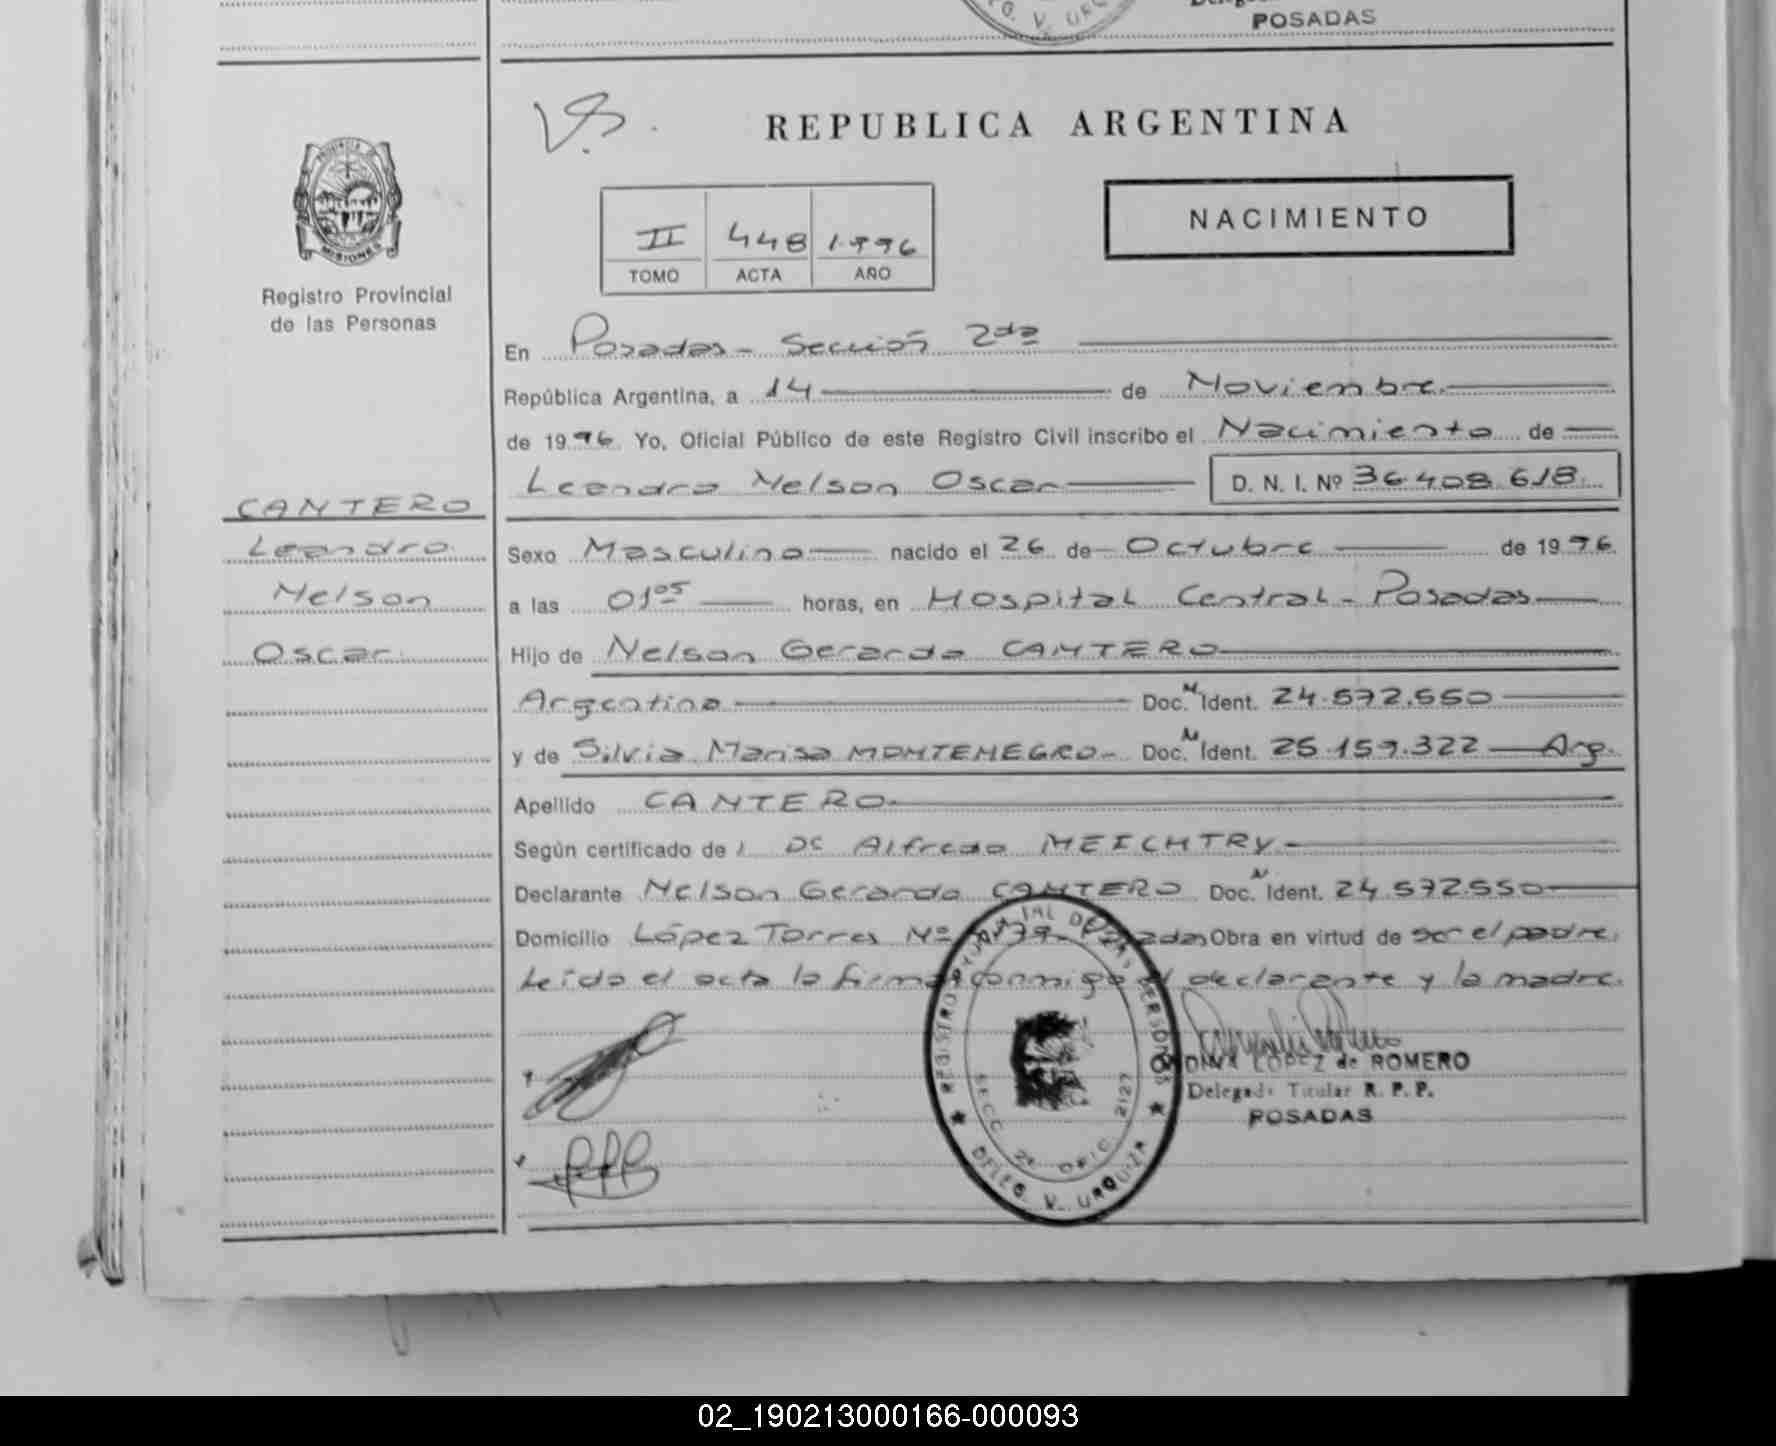 POSADAS
REPUBLICA ARGENTINA
NACIMIENTO
II 448 1.996
TOMO ACTA AÑO
PROVINCIA DE MISIONES
Registro Provincial
de las Personas
CANTERO
Leandro
Nelson
Oscar
En Posadas - Sección 2da
República Argentina, a 14 de Noviembre
de 1996 Yo, Oficial Público de este Registro Civil inscribo el Nacimiento de
Leandro Nelson Oscar D. N. I. Nº 36.408.618.
Sexo Masculino nacido el 26 de Octubre de 1996
a las 01 05 horas, en Hospital Central - Posadas
Hijo de Nelson Gerardo CANTERO
Argentina Doc. N Ident. 24.572.550
y de Silvia Marisa MONTENEGRO - Doc. N Ident. 25.159.322 Arg.
Apellido CANTERO
Según certificado de l Dr Alfredo MEICHTRY
Declarante Nelson Gerardo CANTERO Doc. N Ident. 24.572.550
Domicilio López Torres Nº Posadas Obra en virtud de ser el padre.
Leída el acta la firma conmigo el declarante y la madre.
REGISTRO PROVINCIAL DE LAS PERSONAS
SECC. 2ª OFIC. 2127
DELEG. V. URQUIZA
LOPEZ de ROMERO
Delegada Titular R. P. P.
POSADAS
02_190213000166-000093